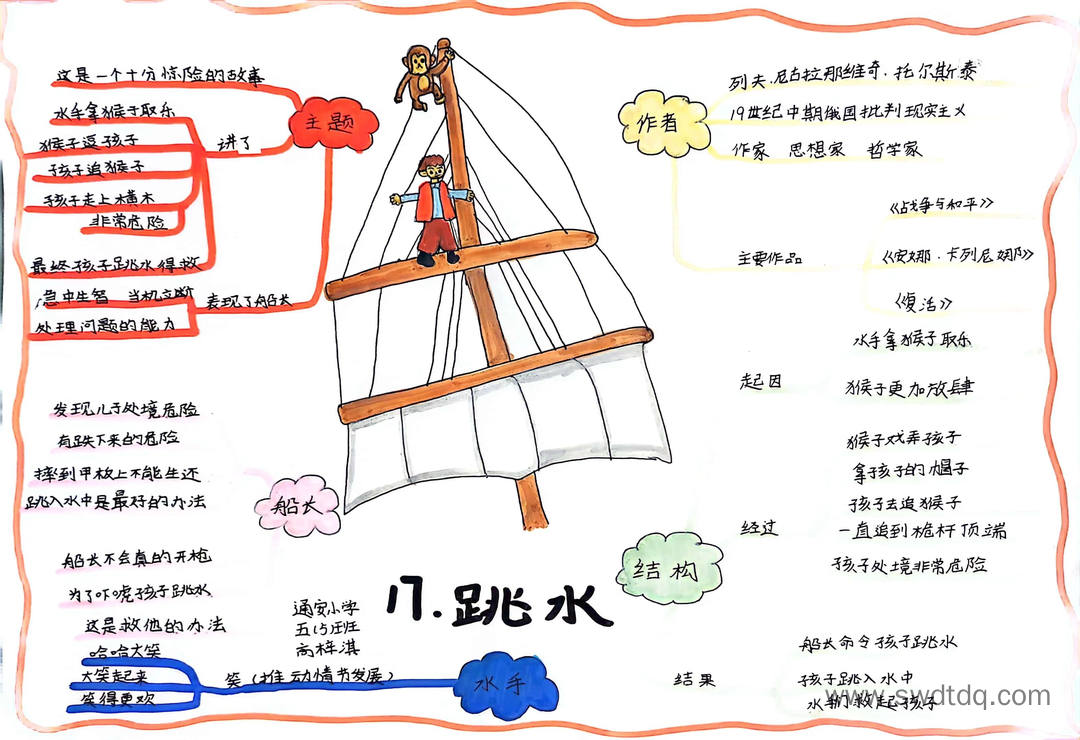 主题
这是一个十分惊险的故事
讲了
水手拿猴子取乐
猴子逗孩子
孩子追猴子
孩子走上横木
非常危险
最终孩子跳水得救
表现了船长
急中生智 当机立断
处理问题的能力
作者
列夫·尼古拉那维奇·托尔斯泰
19世纪中期俄国批判现实主义
作家 思想家 哲学家
主要作品
《战争与和平》
《安娜·卡列尼娜》
《复活》
船长
发现儿子处境危险
有跌下来的危险
摔到甲板上不能生还
跳入水中是最好的办法
船长不会真的开枪
为了吓唬孩子跳水
这是救他的办法
结构
起因
水手拿猴子取乐
猴子更加放肆
经过
猴子戏弄孩子
拿孩子的帽子
孩子去追猴子
一直追到桅杆顶端
孩子处境非常危险
结果
船长命令孩子跳水
孩子跳入水中
水手们救起孩子
水手
笑(推动情节发展)
哈哈大笑
大笑起来
笑得更欢
17.跳水
通安小学
五(5)班
高梓淇
www.swdtdq.com